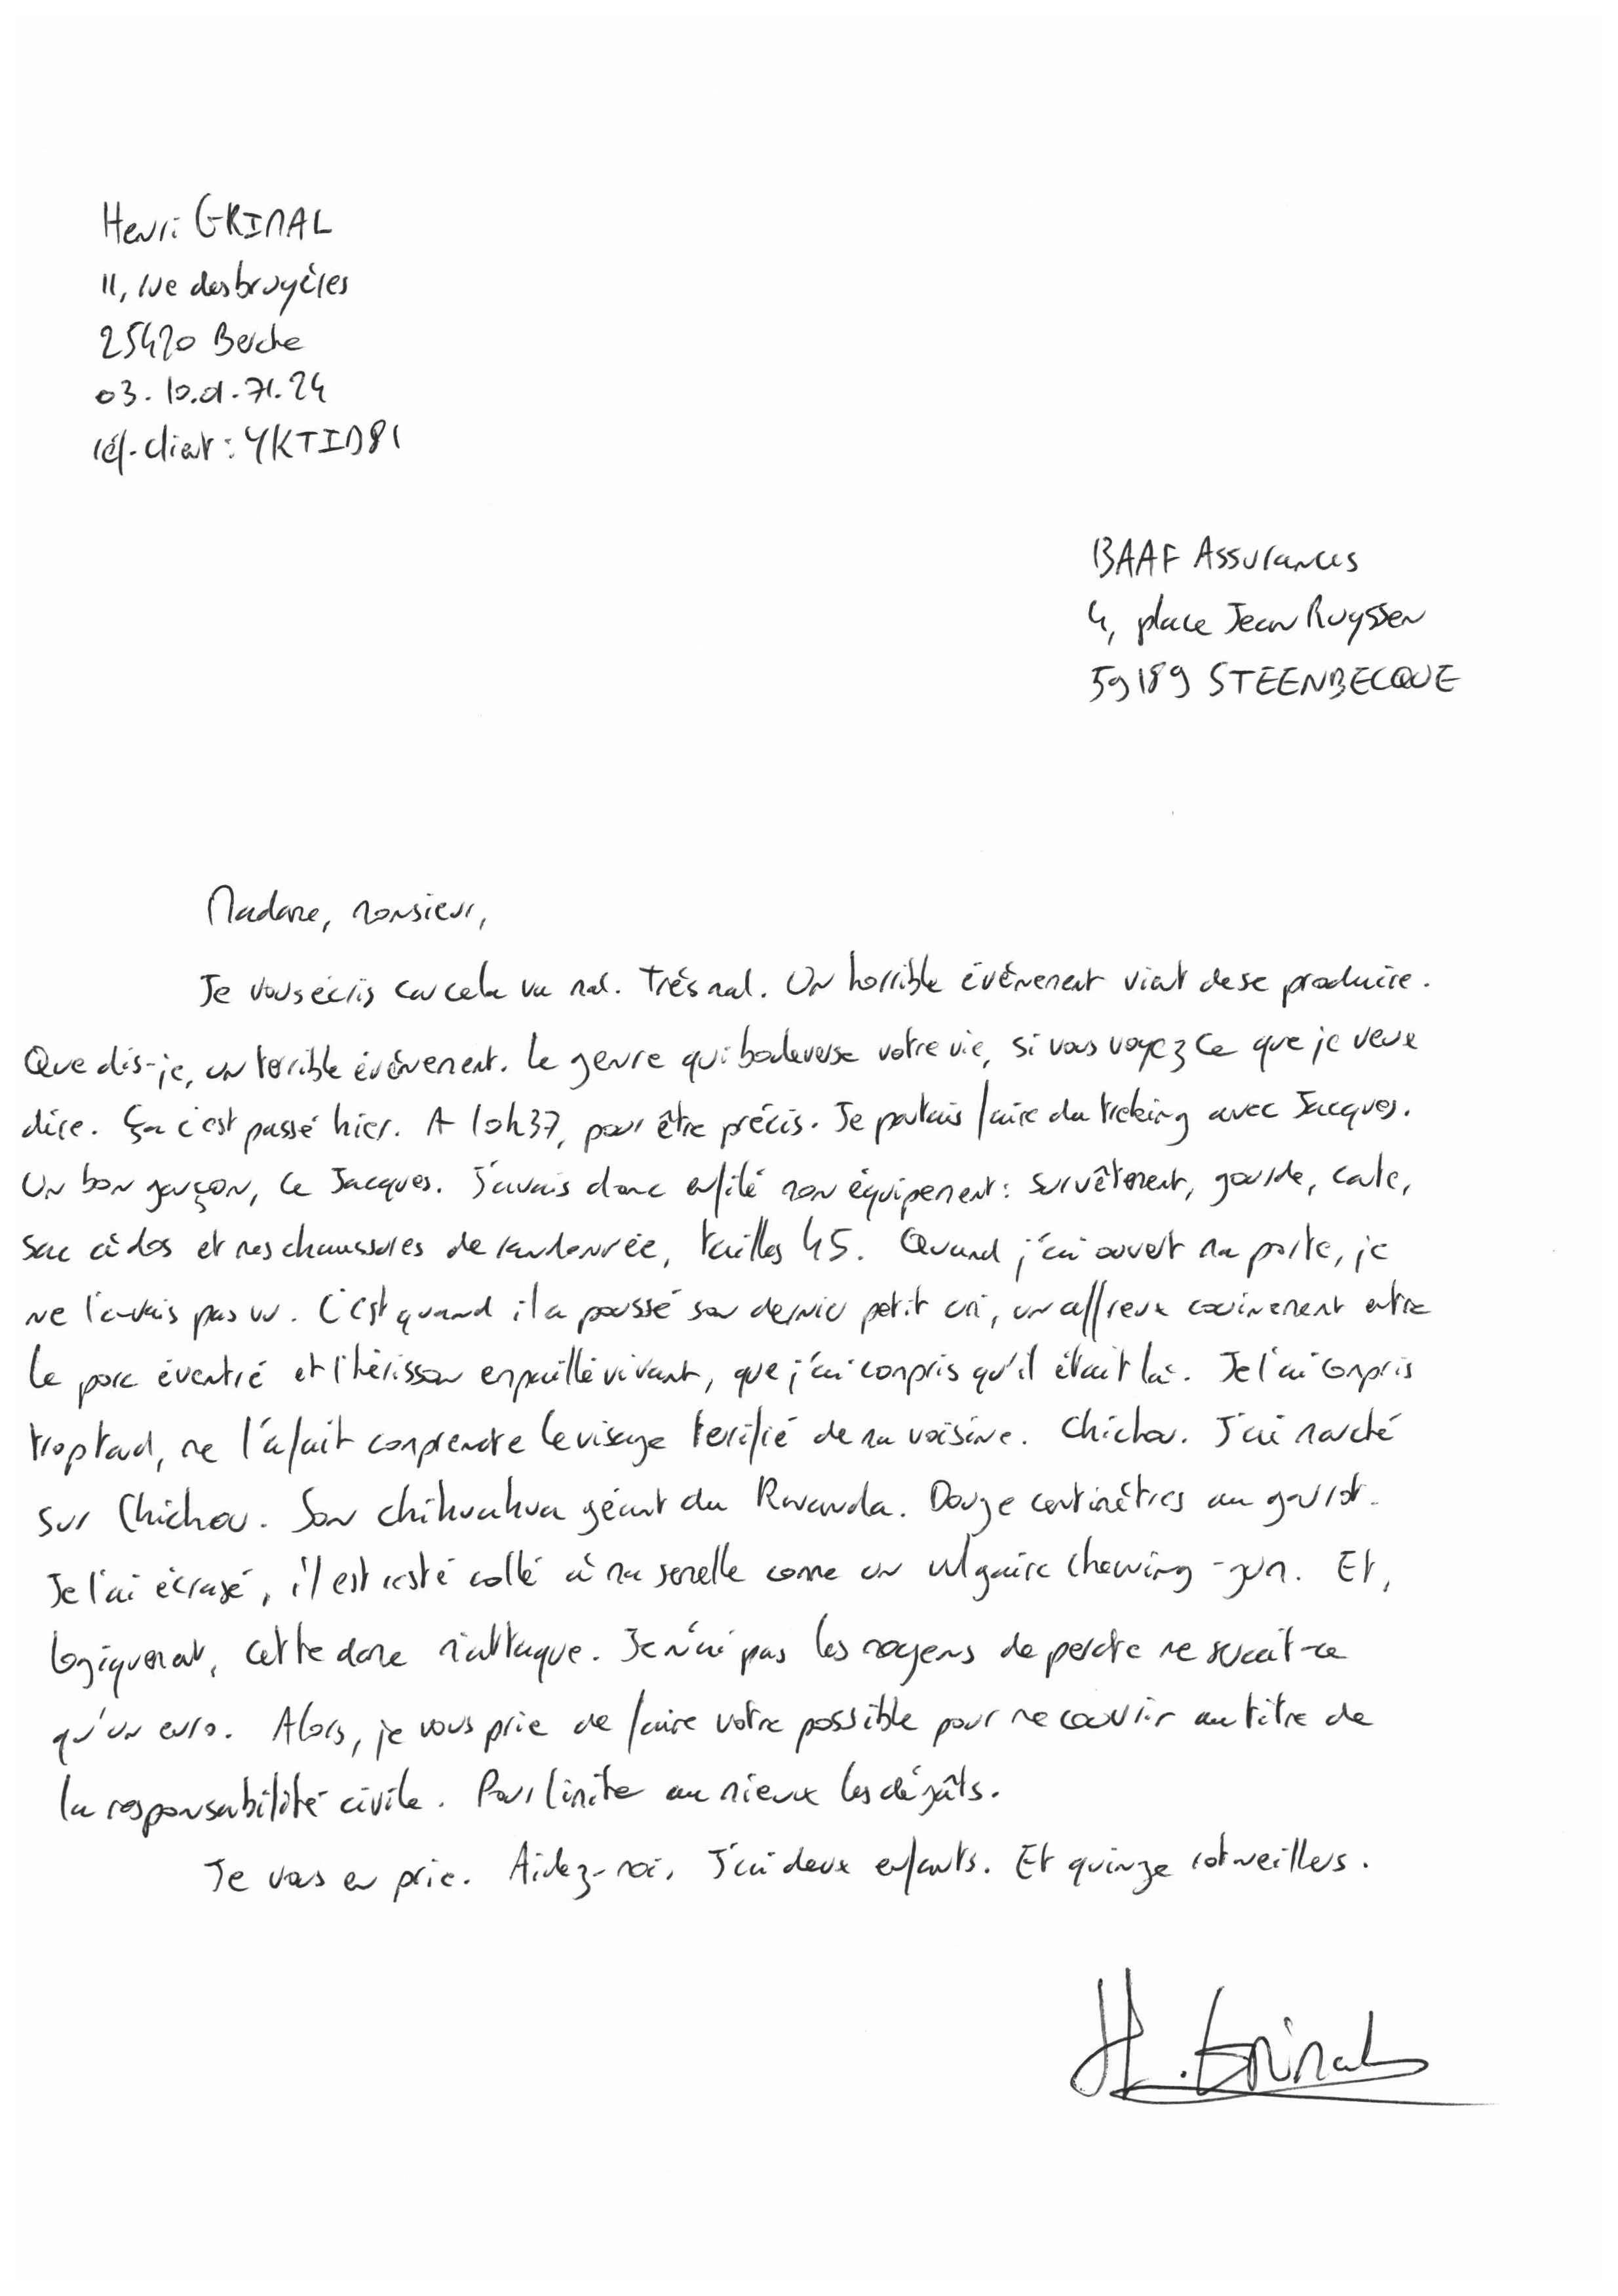 Henri GRIMAL
11, rue des bruyères
25420 Berche
03.10.01.71.24
réf. client : YKTID81
BAAF Assurances
4, place Jean Ruyssen
59189 STEENBECQUE
Madame, monsieur,
Je vous écris car cela va mal. Très mal. Un horrible évènement vient de se produire.
Que dis-je, un terrible évènement. Le genre qui bouleverse votre vie, si vous voyez ce que je veux
dire. Ça c'est passé hier. A 10h37, pour être précis. Je partais faire du treking avec Jacques.
Un bon garçon, ce Jacques. J'avais donc enfilé mon équipement : survêtement, gourde, carte,
sac à dos et mes chaussures de randonnée, tailles 45. Quand j'ai ouvert ma porte, je
ne l'avais pas vu. C'est quand il a poussé son dernier petit cri, un affreux couinement entre
le porc éventré et l'hérisson empaillé vivant, que j'ai compris qu'il était là. Je l'ai compris
trop tard, me l'a fait comprendre le visage terifié de ma voisine. Chichou. J'ai marché
sur Chichou. Son chihuahua géant du Rwanda. Douze centimètres au garrot.
Je l'ai écrasé, il est resté collé à ma semelle comme un vulgaire chewing-gum. Et,
logiquement, cette dame m'attaque. Je n'ai pas les moyens de perdre ne serait-ce
qu'un euro. Alors, je vous prie de faire votre possible pour me couvrir au titre de
la responsabilité civile. Pour limiter au mieux les dégâts.
Je vous en prie. Aidez-moi. J'ai deux enfants. Et quinze rotweillers.
H. Grimal